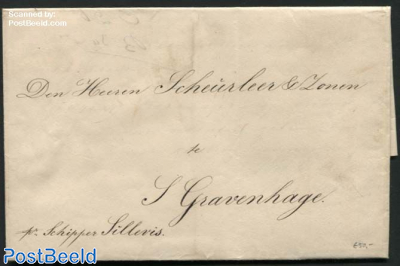 Scanned by:
PostBeeld.com
Den Heeren Scheürleer & Zonen
te
S Gravenhage.
pr. Schipper Sillevis.
€50,-
PostBeeld